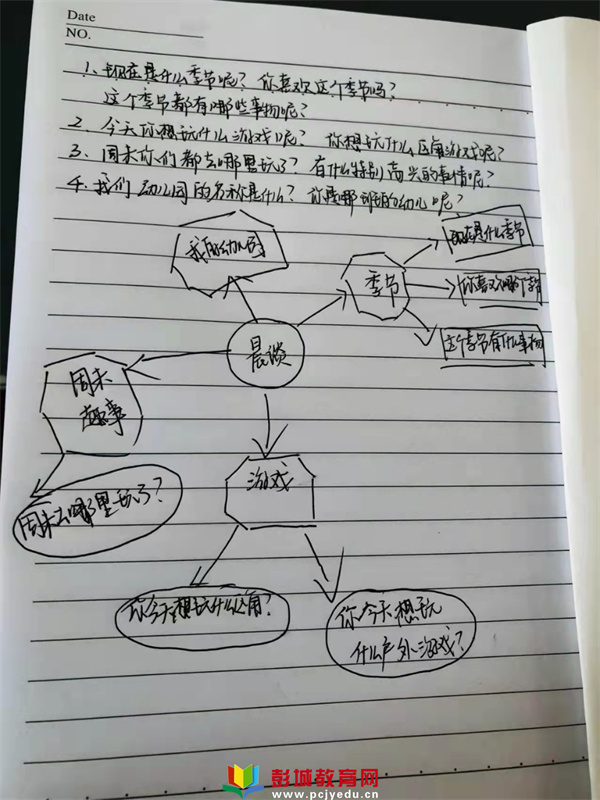 Date
NO.
1、现在是什么季节呢？你喜欢这个季节吗？
这个季节都有哪些事物呢？
2、今天你想玩什么游戏呢？你想玩什么区角游戏呢？
3、周末你们都去哪里玩了？有什么特别高兴的事情呢？
4、我们幼儿园的名称是什么？你是哪班的幼儿呢？
我的幼儿园
季节
现在是什么季节
你喜欢哪个季节
这个季节有什么事物
晨谈
周末
趣事
周末去哪里玩了？
游戏
你今天想玩什么区角？
你今天想玩
什么户外游戏？
彭城教育网
www.pcjyedu.cn